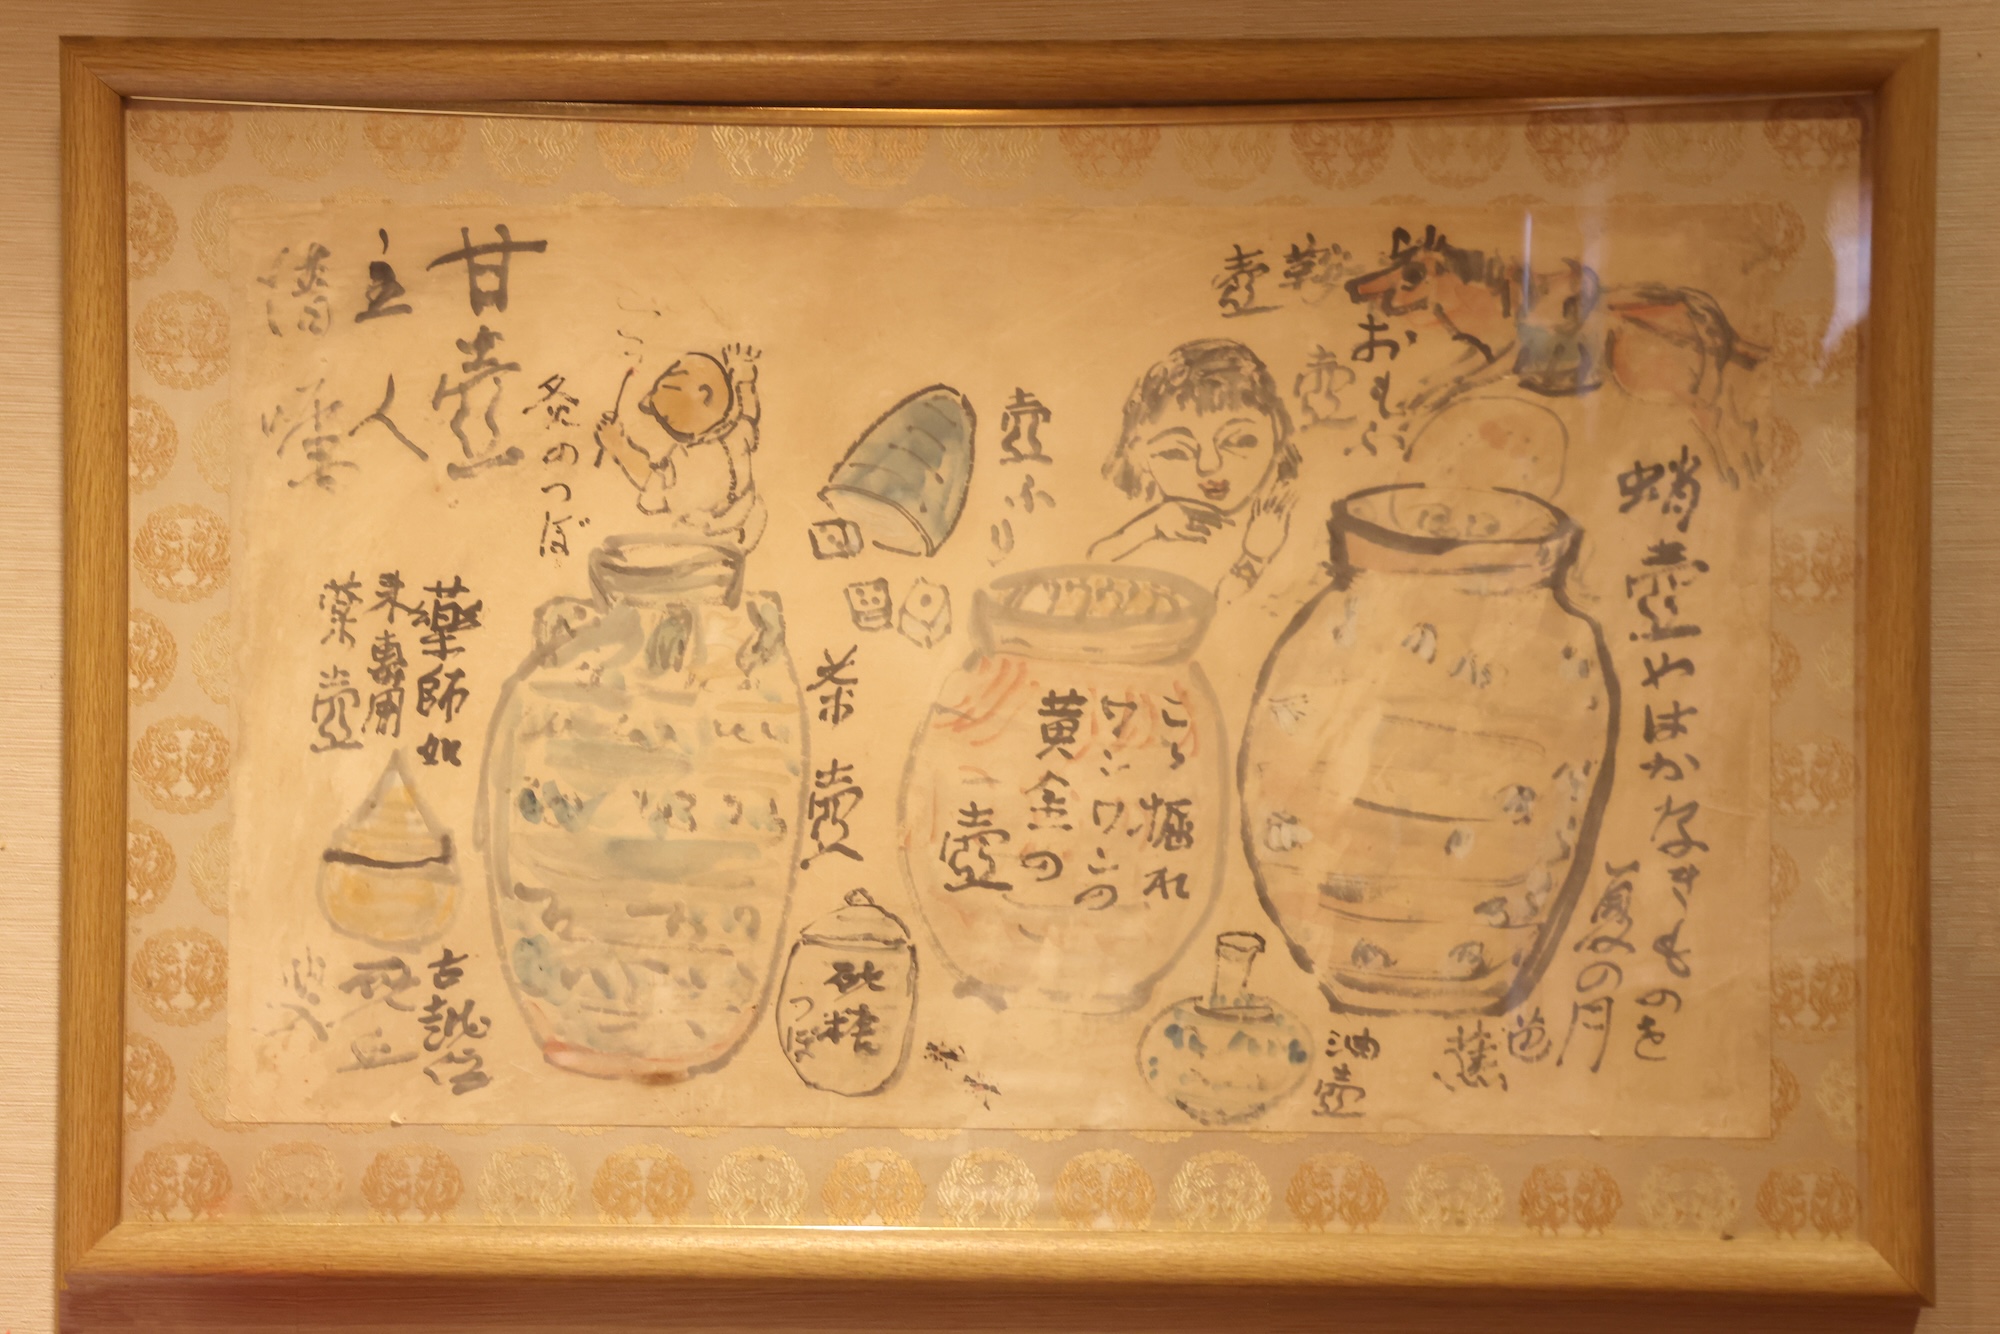 蛸壺やはかなきものを
夏の月
芭蕉
おもふ
壺
鞍
壺
油壺
壺ふり
こゝ掘れ
ワンワンの
黄金の
壺
茶壺
砂糖
つぼ
灸のつぼ
甘壺
主人
藥師如
来専用
薬壺
古誠